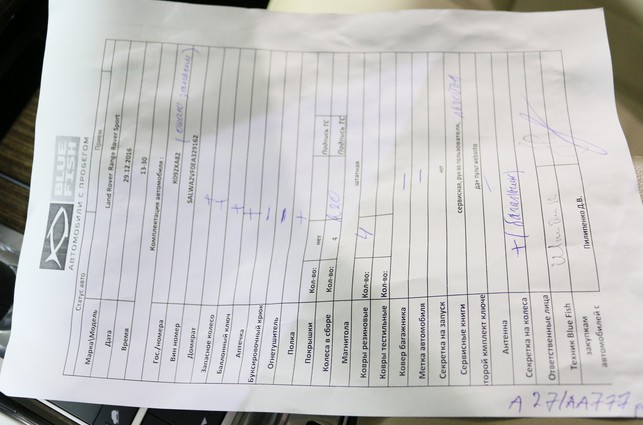 BLUE
FISH
АВТОМОБИЛИ С ПРОБЕГОМ
Статус авто
Прием
Марка\Модель Land Rover Range Rover Sport
Дата 29.12.2016
Время 13-30
Комплектация автомобиля :
Гос./номера K092XA82
Вин номер SALWA2VF0EA329162
Домкрат +
Запасное колесо +
Баллонный ключ +
Аптечка +
Буксировочный крюк +
Огнетушитель —
Полка —
Покрышки Кол-во: нет
Колеса в сборе Кол-во: 4 Подпись ТС
Магнитола штатная
Ковры резиновые Кол-во: 4
Ковры тестильные Кол-во:
Ковер багажника —
Метка автомобиля —
Секретка на запуск нет
Сервисные книги сервисная, рук-во пользователя,
торой кмплект ключе да
Антенна
Секретка на колеса + (багажник)
Ответственные лица
Техник Blue Fish
закупкам Пилипенко Д.В.
автомобилей с
A 271AA777